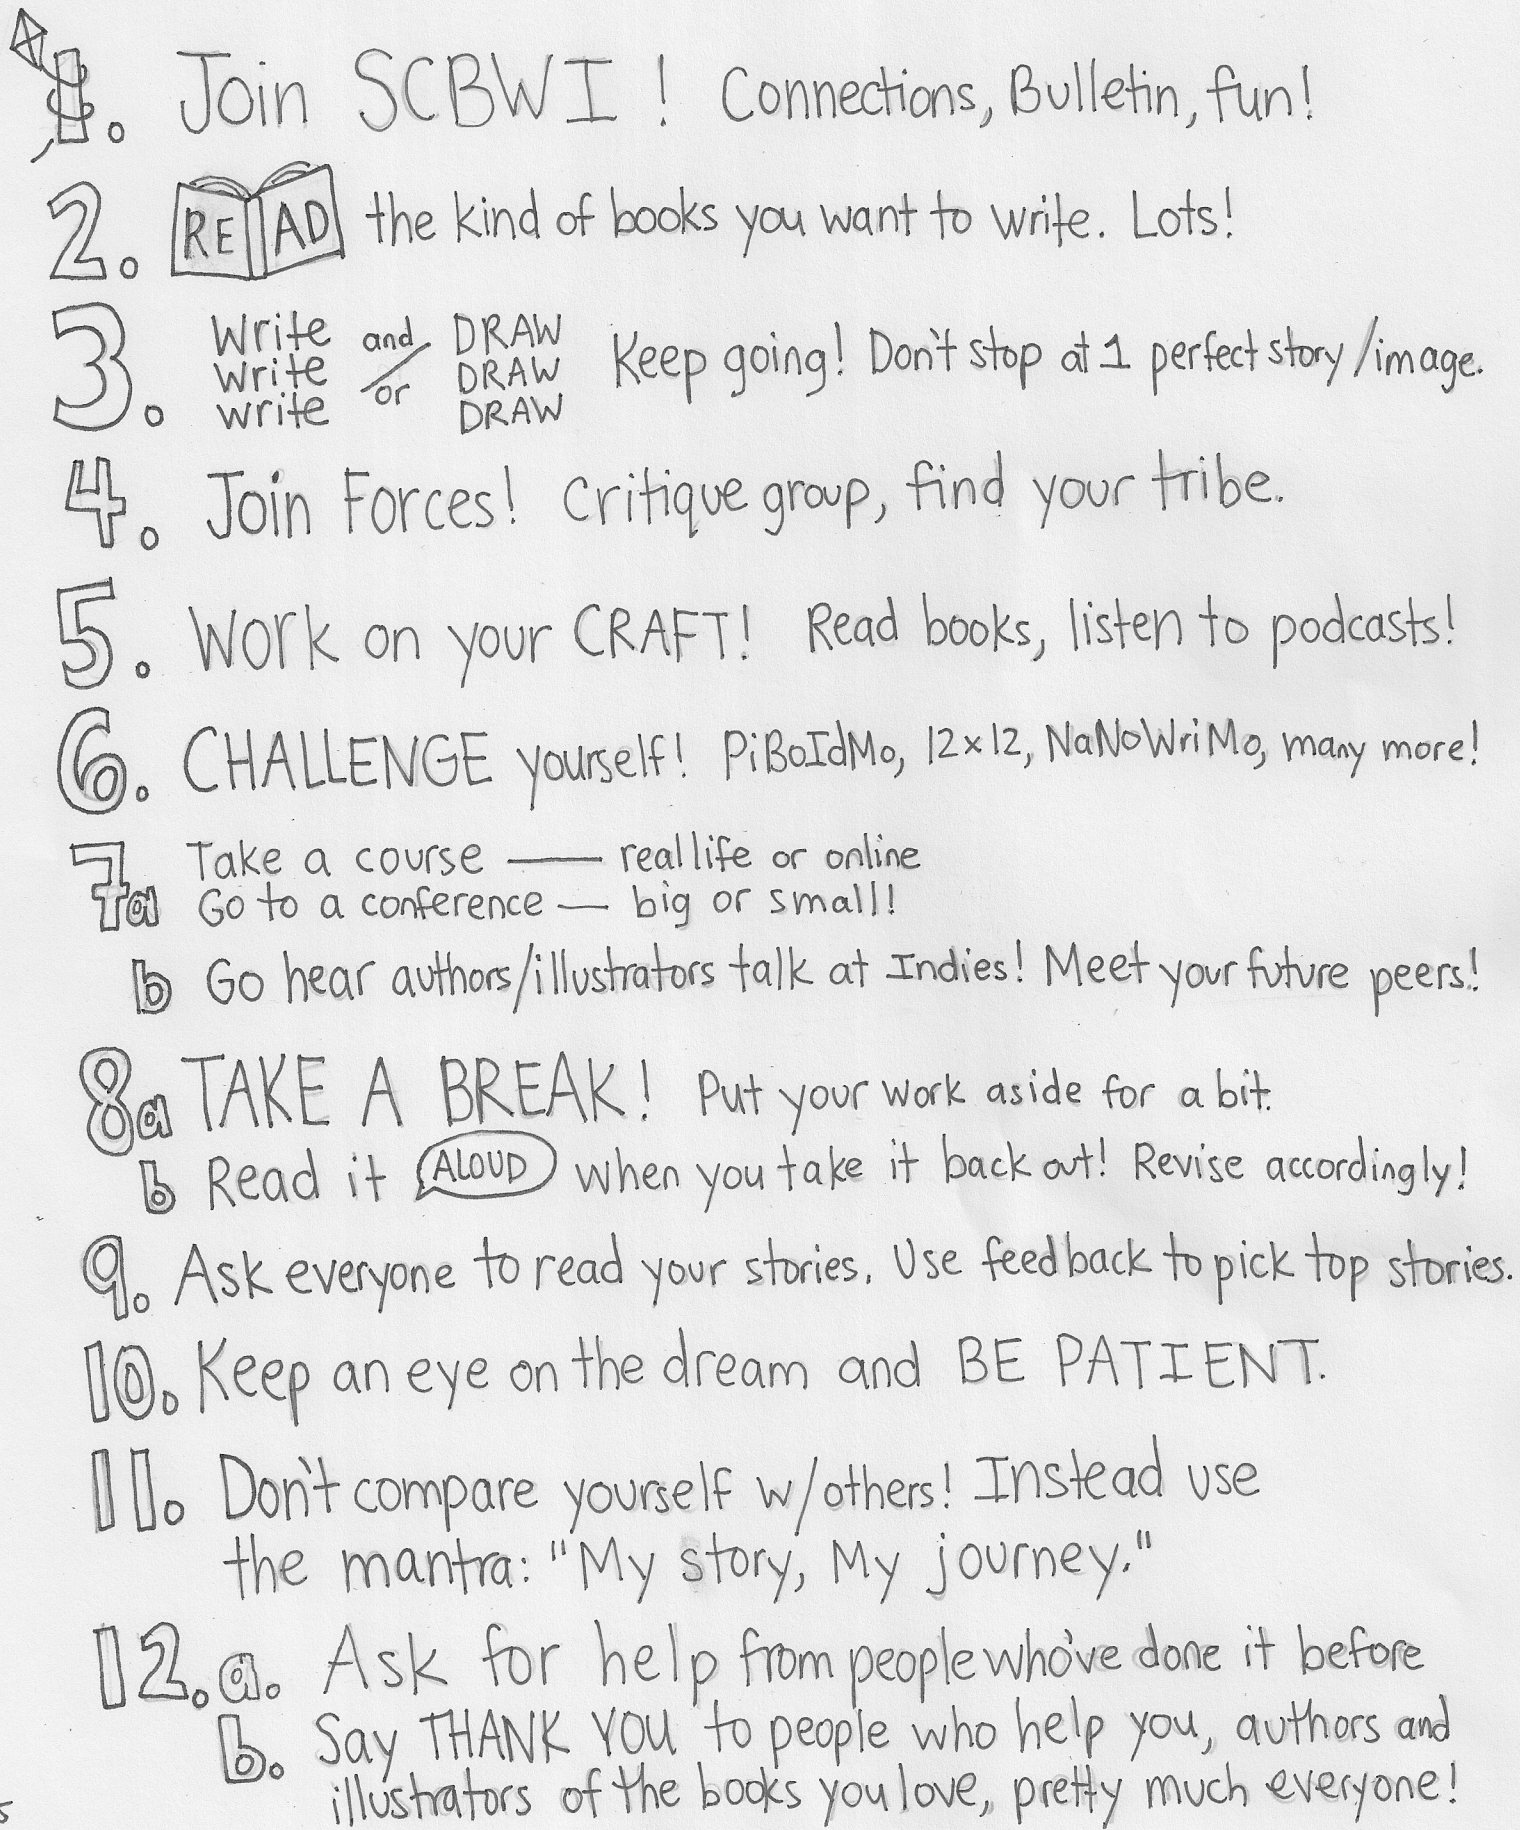 1. Join SCBWI! Connections, Bulletin, fun!
2. READ the kind of books you want to write. Lots!
3. Write and/or DRAW Keep going! Don't stop at 1 perfect story/image.
write DRAW
write DRAW
4. Join Forces! Critique group, find your tribe.
5. Work on your CRAFT! Read books, listen to podcasts!
6. CHALLENGE yourself! PiBoIdMo, 12x12, NaNoWriMo, many more!
7a Take a course — real life or online
Go to a conference — big or small!
b Go hear authors/illustrators talk at Indies! Meet your future peers!
8a TAKE A BREAK! Put your work aside for a bit.
b Read it ALOUD when you take it back out! Revise accordingly!
9. Ask everyone to read your stories. Use feedback to pick top stories.
10. Keep an eye on the dream and BE PATIENT.
11. Don't compare yourself w/others! Instead use
the mantra: "My story, My journey."
12. a. Ask for help from people who've done it before
b. Say THANK YOU to people who help you, authors and
illustrators of the books you love, pretty much everyone!